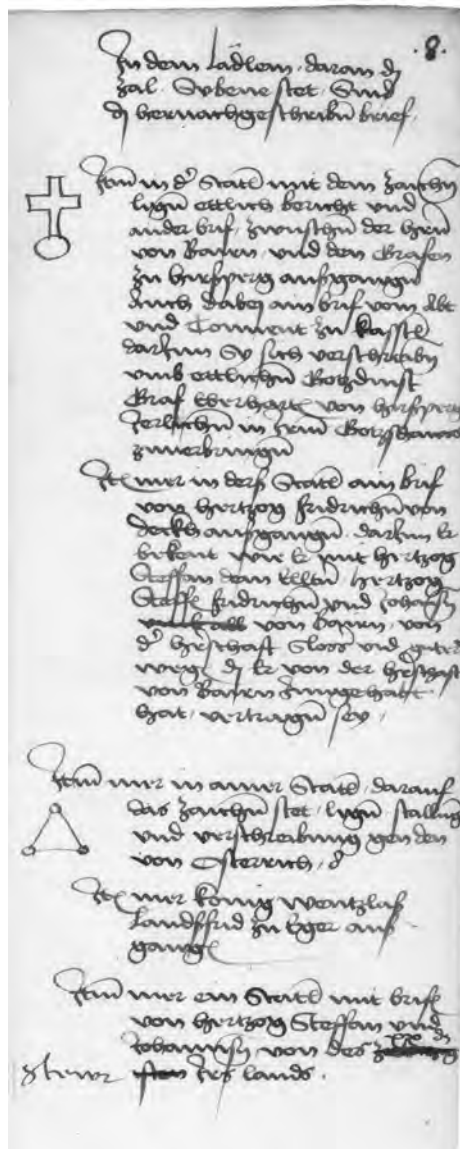 .8.
In dem Lädlein daran die
zal Sybene stet Sind
die hernachgeschriben brief
Item in der Scatel mit dem zaichen
ligen ettlich bericht und
ander brif zwischen der hern
von Bairn und den Grafen
zu hirsperg aufgangen
Auch dabey ain brif vom Abt
und Convent zu Kastel
darinn Sy sich verschreiben
umb ettlichen Gotzdinst
Graf Eberharts von hirsperg
Jerlichen in irem Gotzhaws
zuverbringen
Item mer in derselben Scatel ain brif
von hertzog fridrichen von
deckh aufgangen darinn Er
bekent wie Er mit hertzog
Steffan dem Eltern hertzog
Steffan fridrichen und Johansen
von Bairn von
der herschaft Slos und guter
wegen die Er von der herschaft
von Bairn Inngehabt
hat vertragen sey
Item mer in ainer Scatel darauf
das zaichen stet ligen
und verschreibung gen den
von Osterrich
Item mer Konig Wentzlas
Landsfrid zu Eger aus
gangen
Item mer ein Scatel mit brifen
von hertzog Steffan und
Johannsen von des
stewr irs lands .